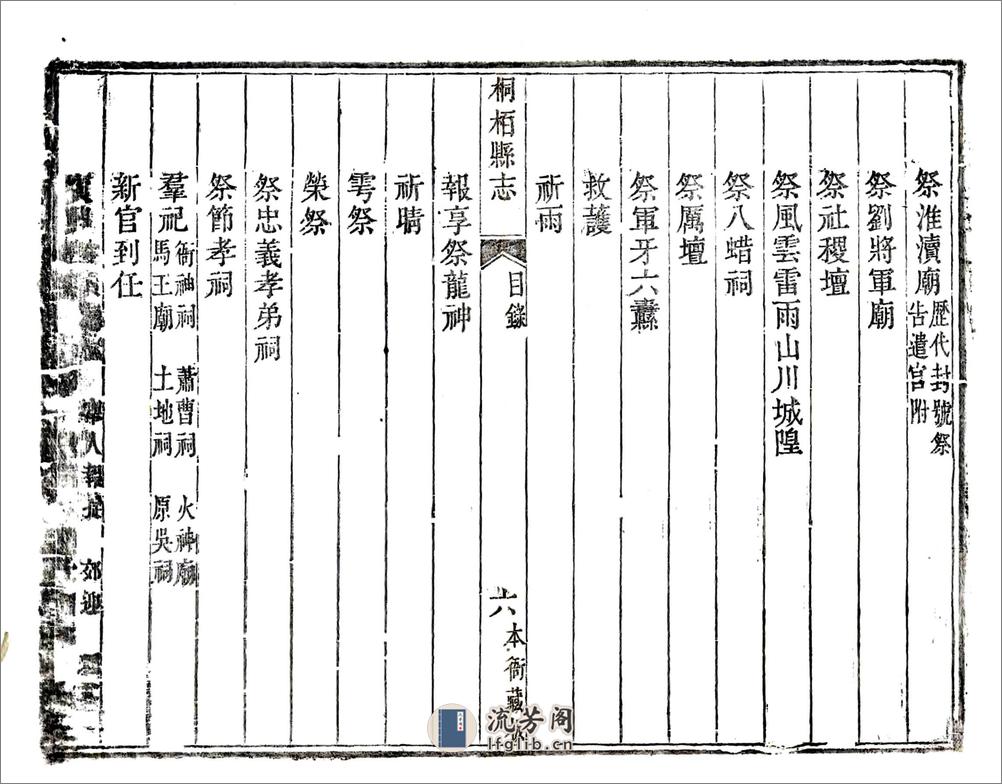 祭淮瀆廟歷代封號祭
告遣官附
祭劉將軍廟
祭社稷壇
祭風雲雷雨山川城隍
祭八蜡祠
祭厲壇
祭軍牙六纛
救護
祈雨
桐栢縣志
目錄
六
本衙藏
報享祭龍神
祈晴
雩祭
禜祭
祭忠義孝弟祠
祭節孝祠
羣祀衙神祠 蕭曹祠 火神廟
馬王廟 土地祠 原吳祠
新官到任
人報 郊迎
流芳阁
lfglib.cn